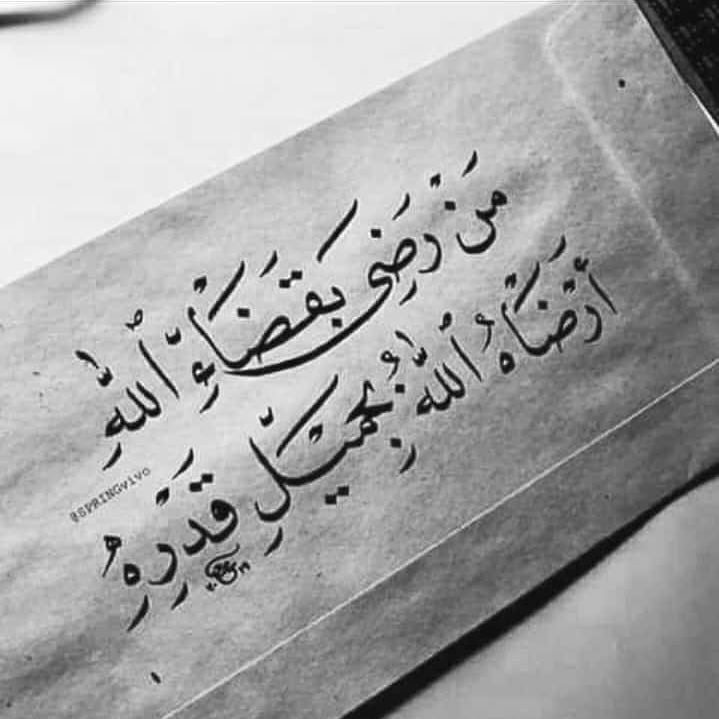 مَنْ رَضِيَ بِقَضَاءِ ٱللهِ
أَرْضَاهُ ٱللهُ بِجَمِيلِ قَدَرِهِ
@SPRINGvivo